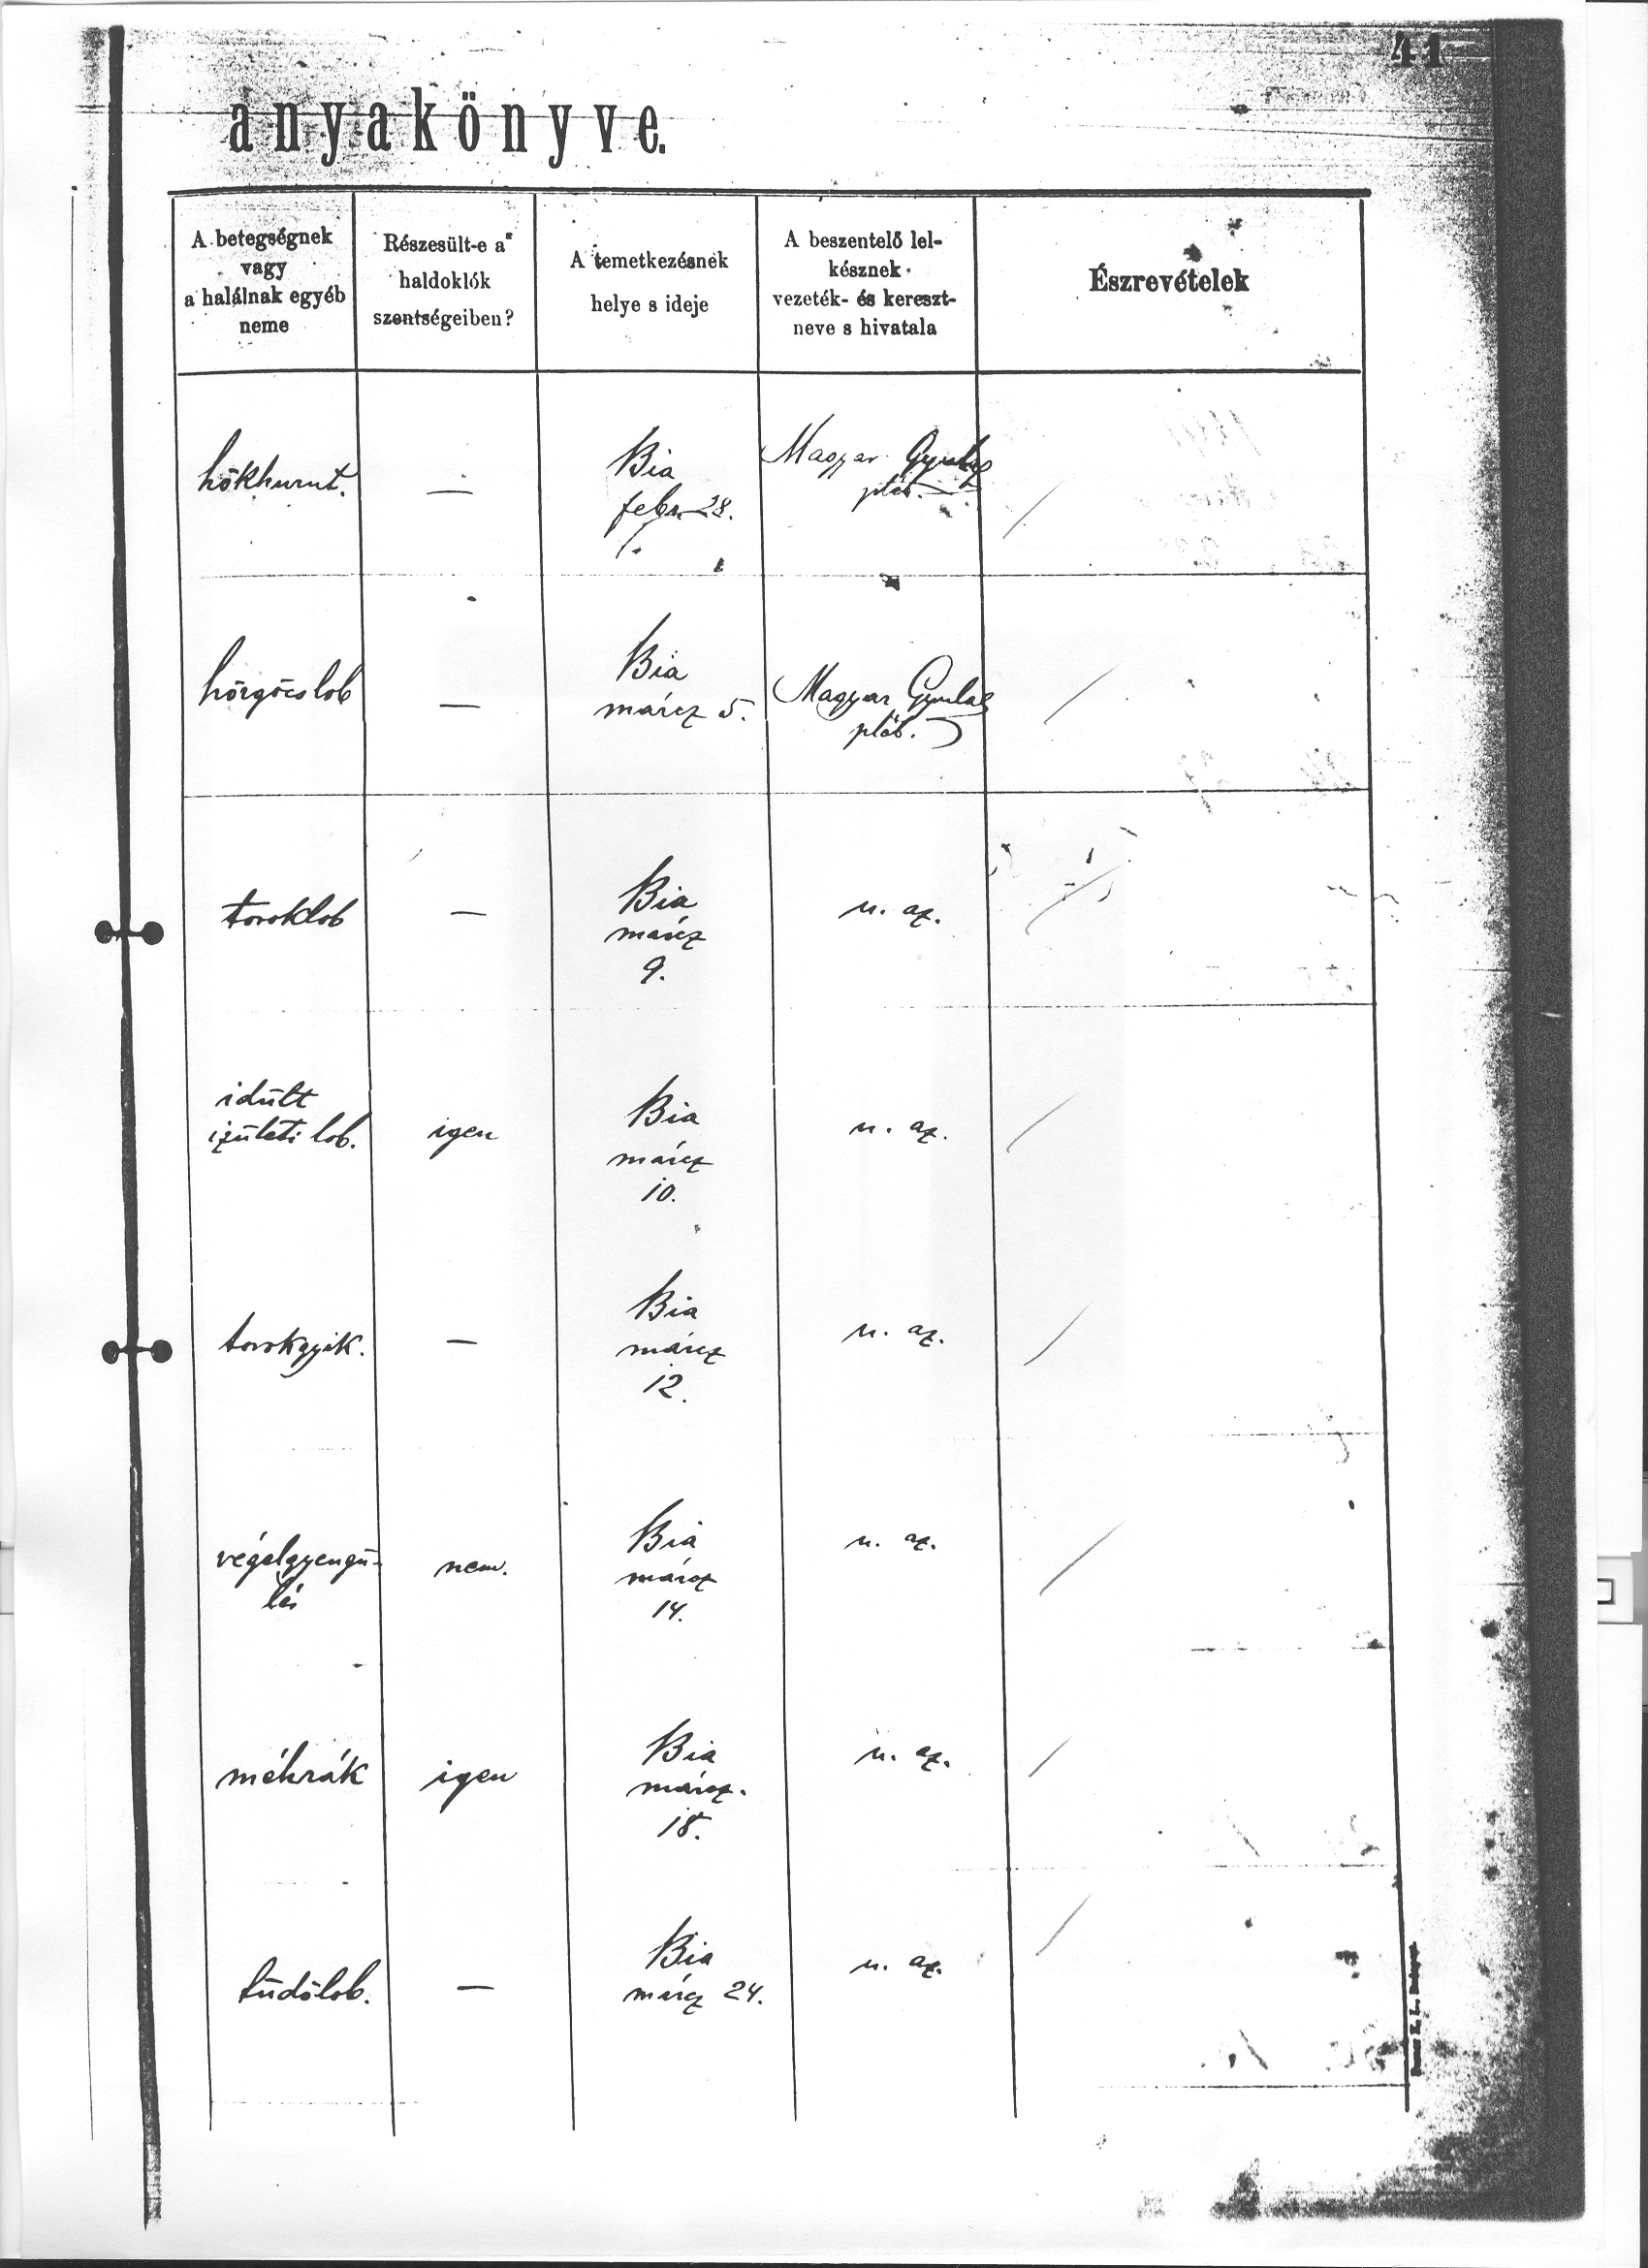 41
anyakönyve.
A betegségnek
vagy
a halálnak egyéb
neme
Részesült-e a
haldoklók
szentségeiben?
A temetkezésnek
helye s ideje
A beszentelő lel-
késznek
vezeték- és kereszt-
neve s hivatala
Észrevételek
hökhurut.
—
Bia
febr. 28.
Magyar Gyula
pléb.
hörgőcslob
—
Bia
március 5.
Magyar Gyula
pléb.
toroklob
—
Bia
márcz
9.
u. az.
idült
izületi lob.
igen
Bia
márcz
10.
u. az.
torokgyik.
—
Bia
márcz
12.
u. az.
végelgyengü-
lés
nem.
Bia
márcz
14.
u. az.
méhrák
igen
Bia
márcz.
18.
u. az.
tüdőlob.
—
Bia
márcz 24.
u. az.